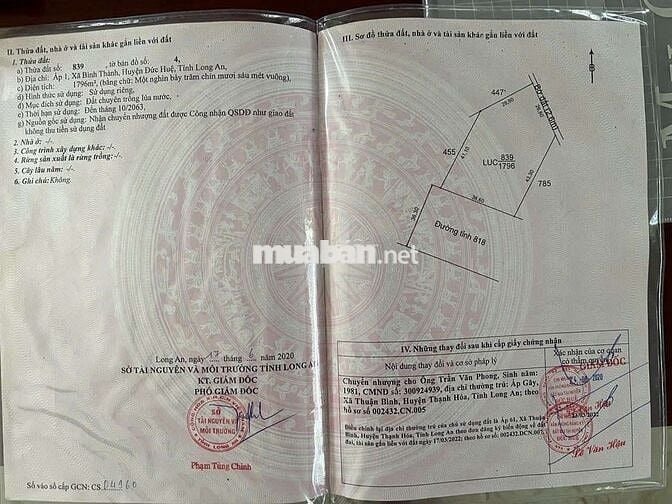 II. Thửa đất, nhà ở và tài sản khác gắn liền với đất
1. Thửa đất:
a) Thửa đất số: 839, tờ bản đồ số: 4,
b) Địa chỉ: Ấp 1, Xã Bình Thành, Huyện Đức Huệ, Tỉnh Long An,
c) Diện tích: 1796m², (bằng chữ: Một nghìn bảy trăm chín mươi sáu mét vuông),
d) Hình thức sử dụng: Sử dụng riêng,
đ) Mục đích sử dụng: Đất chuyên trồng lúa nước,
e) Thời hạn sử dụng: Đến tháng 10/2063,
g) Nguồn gốc sử dụng: Nhận chuyển nhượng đất được Công nhận QSDĐ như giao đất
không thu tiền sử dụng đất
2. Nhà ở: -/-.
3. Công trình xây dựng khác: -/-.
4. Rừng sản xuất là rừng trồng: -/-.
5. Cây lâu năm: -/-.
6. Ghi chú: Không.
Long An, ngày 17 tháng 6 năm 2020
SỞ TÀI NGUYÊN VÀ MÔI TRƯỜNG TỈNH LONG AN
KT. GIÁM ĐỐC
PHÓ GIÁM ĐỐC
SỞ
TÀI NGUYÊN VÀ
MÔI TRƯỜNG
Phạm Tùng Chinh
Số vào sổ cấp GCN: CS 04160
III. Sơ đồ thửa đất, nhà ở và tài sản khác gắn liền với đất
447
455
785
LUC 839
1796
41,10
43,50
38,60
36,30
Đường tỉnh 818
muaban.net
IV. Những thay đổi sau khi cấp giấy chứng nhận
Nội dung thay đổi và cơ sở pháp lý
Xác nhận của cơ quan
có thẩm quyền
Chuyển nhượng cho Ông Trần Văn Phong, Sinh năm:
1981, CMND số: 300924939, địa chỉ thường trú: Ấp Gãy,
Xã Thuận Bình, Huyện Thạnh Hóa, Tỉnh Long An; theo
hồ sơ số 002432.CN.005
GIÁM ĐỐC
Điều chỉnh lại địa chỉ thường trú của chủ sử dụng đất là Ấp 61, Xã Thuận
Bình, Huyện Thạnh Hóa, Tỉnh Long An theo đơn đăng ký biến động về đất
đai, tài sản gắn liền với đất ngày 17/03/2022; theo hồ sơ số: 002432.DC.005
Lê Văn Hậu